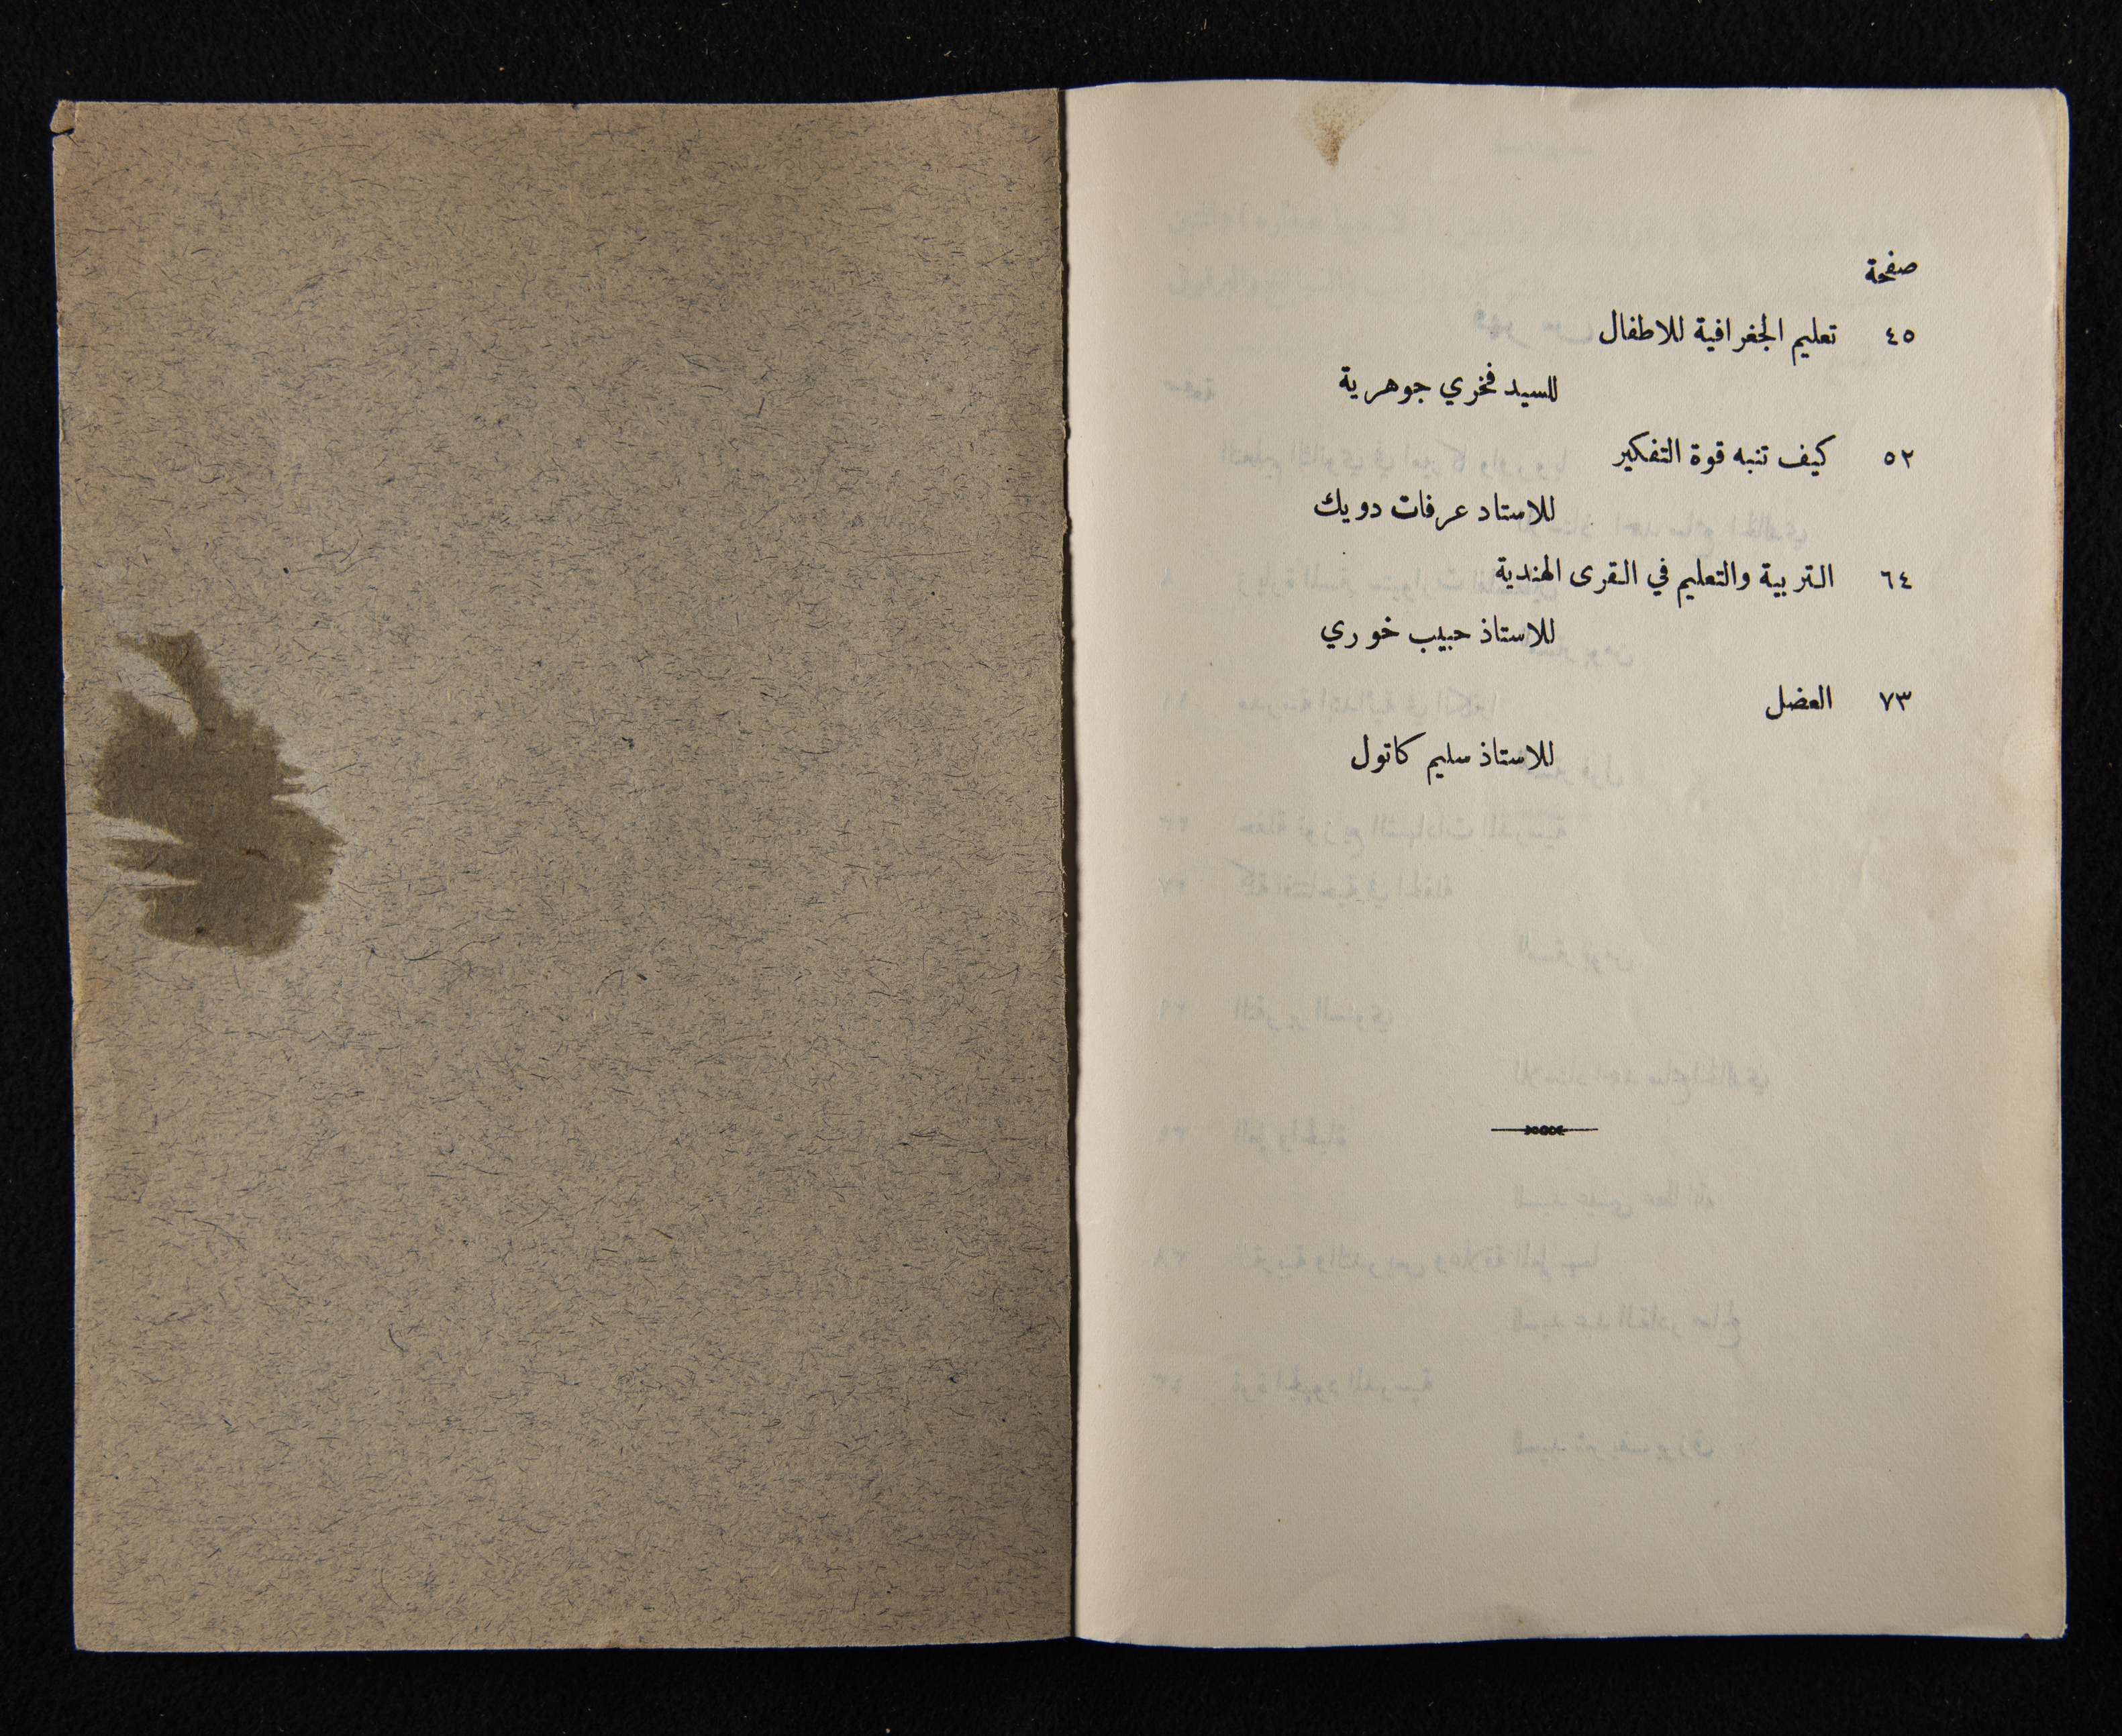 صفحة
٤٥ تعليم الجغرافية للاطفال
للسيد فخري جوهرية
٥٢ كيف تنبه قوة التفكير
للاستاد عرفات دويك
٦٤ التربية والتعليم في القرى الهندية
للاستاذ حبيب خوري
٧٣ العضل
للاستاذ سليم كاتول